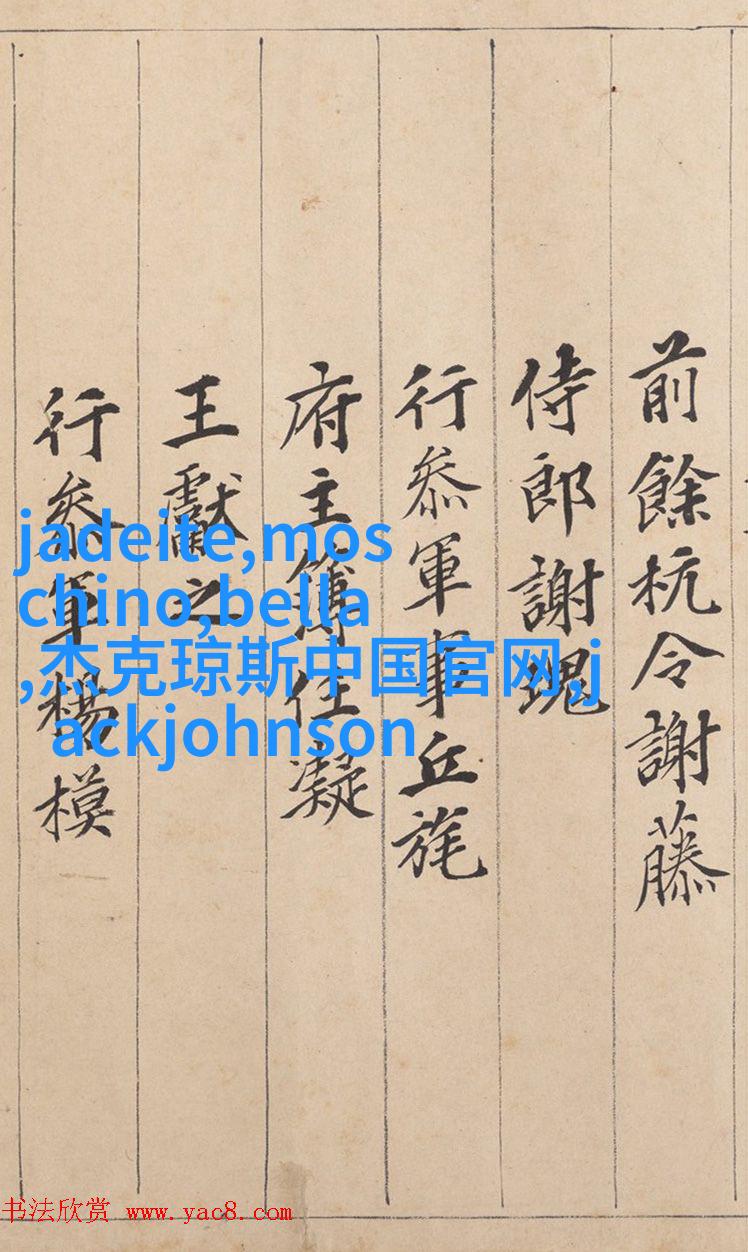 前餘杭令謝藤
侍郎謝瑰
行叅軍事丘旄
府主簿任凝
王獻之
行叅軍楊模
jadeite,mos
chino,bella
,杰克琼斯中国官网,j
ackjohnson
书法欣赏 www.yac8.com